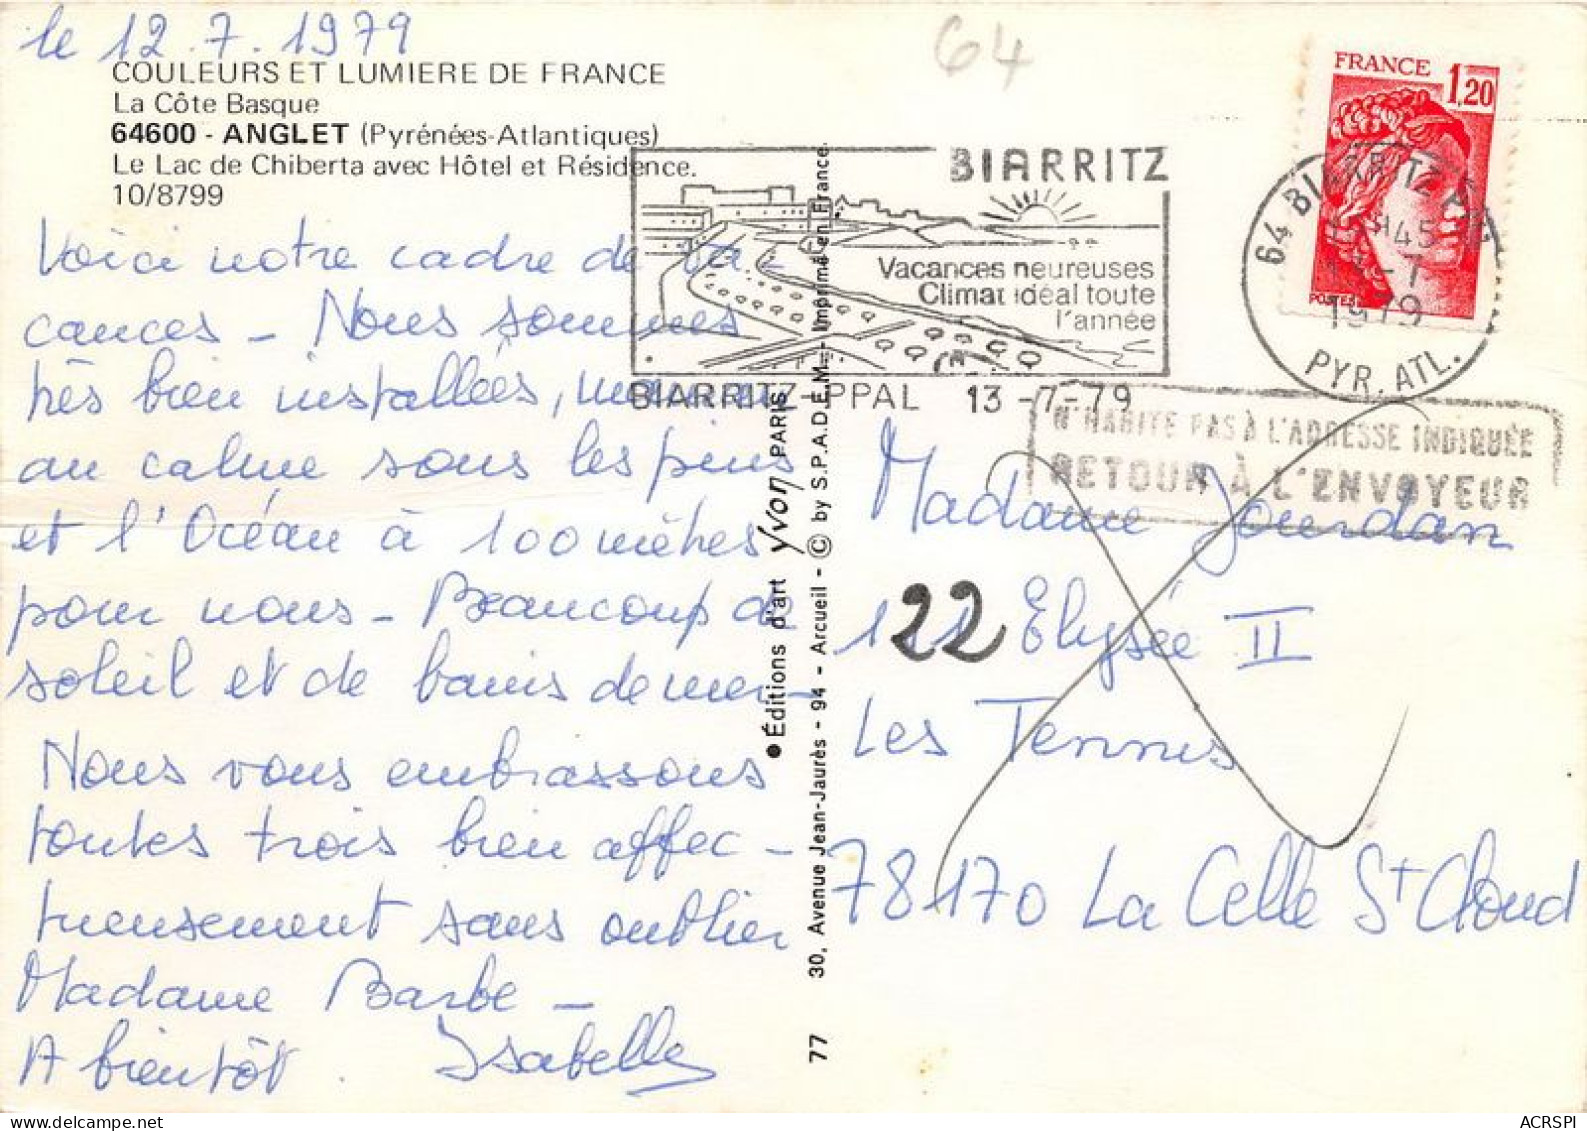 le 12.7.1979
COULEURS ET LUMIERE DE FRANCE
La Côte Basque
64600 - ANGLET (Pyrénées-Atlantiques)
Le Lac de Chiberta avec Hôtel et Résidence.
10/8799
Voici notre cadre de va-
cances - Nous sommes
très bien installées,
au calme sous les pins
et l'Océan à 100 mètres
pour nous - Beaucoup de
soleil et de bains de mer -
Nous vous embrassons
toutes trois bien affec-
tueusement sans oublier
Madame Barbe -
A bientôt. Isabelle
64
FRANCE
1,20
POSTES
BIARRITZ
Vacances heureuses
Climat idéal toute
l'année
BIARRITZ-PPAL 13-7-79
64 BIARRITZ
45
13-7
1979
PYR. ATL.
N'HABITE PAS À L'ADRESSE INDIQUÉE
RETOUR À L'ENVOYEUR
Madame Jourdan
22 Elysée II
Les Tennis
78170 La Celle St Cloud
● Éditions d'art Yvon PARIS
30, Avenue Jean-Jaurès - 94 - Arcueil - © by S.P.A.D.E.M. - Imprimé en France
77
ACRSPI